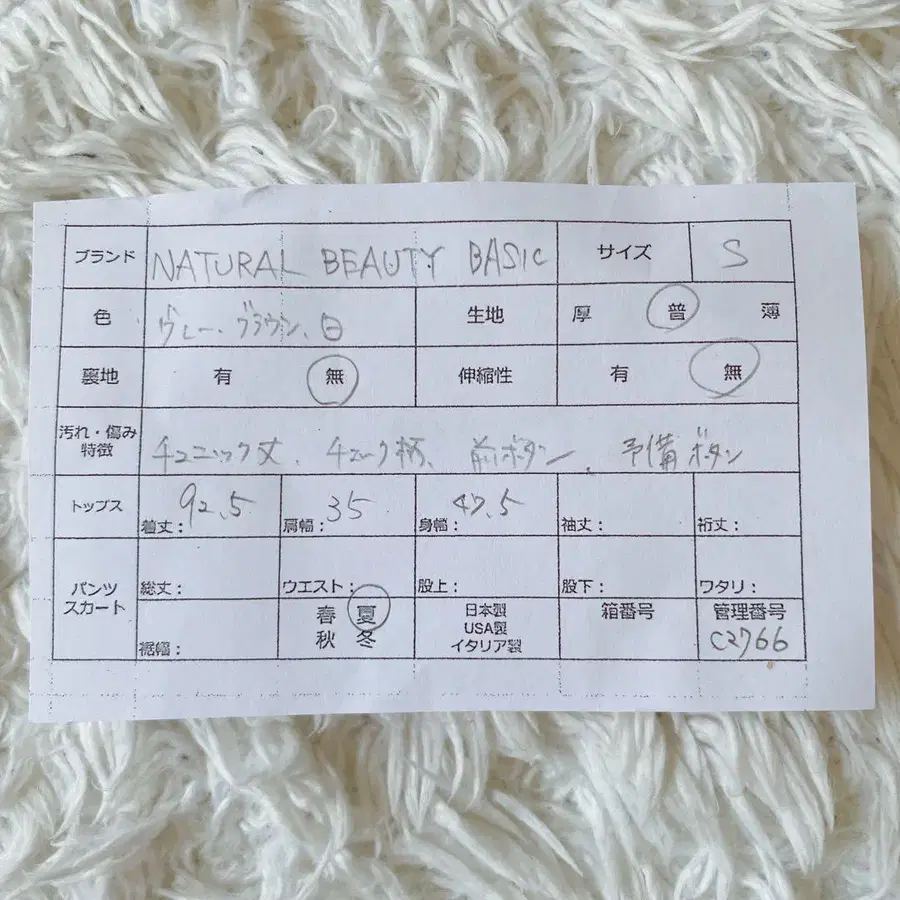 ブランド NATURAL BEAUTY BASIC サイズ S
色 グレー、ブラウン、白 生地 厚 普 薄
裏地 有 無 伸縮性 有 無
汚れ・傷み
特徴 チュニック丈、チェック柄、前ボタン、予備ボタン
トップス 着丈:92.5 肩幅:35 身幅:47.5 袖丈: 裄丈:
パンツ
スカート 総丈: ウエスト: 股上: 股下: ワタリ:
裾幅: 春 夏 日本製 箱番号 管理番号
秋 冬 USA製 C2766
イタリア製